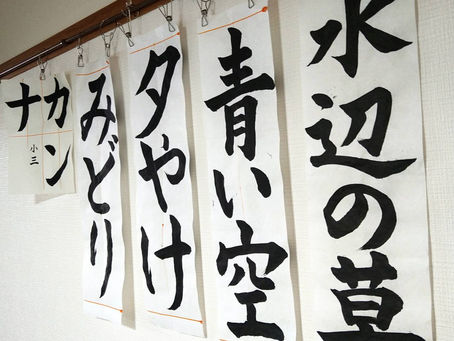 水辺の草
青い空
夕やけ
みどり
カン
ナ
小三